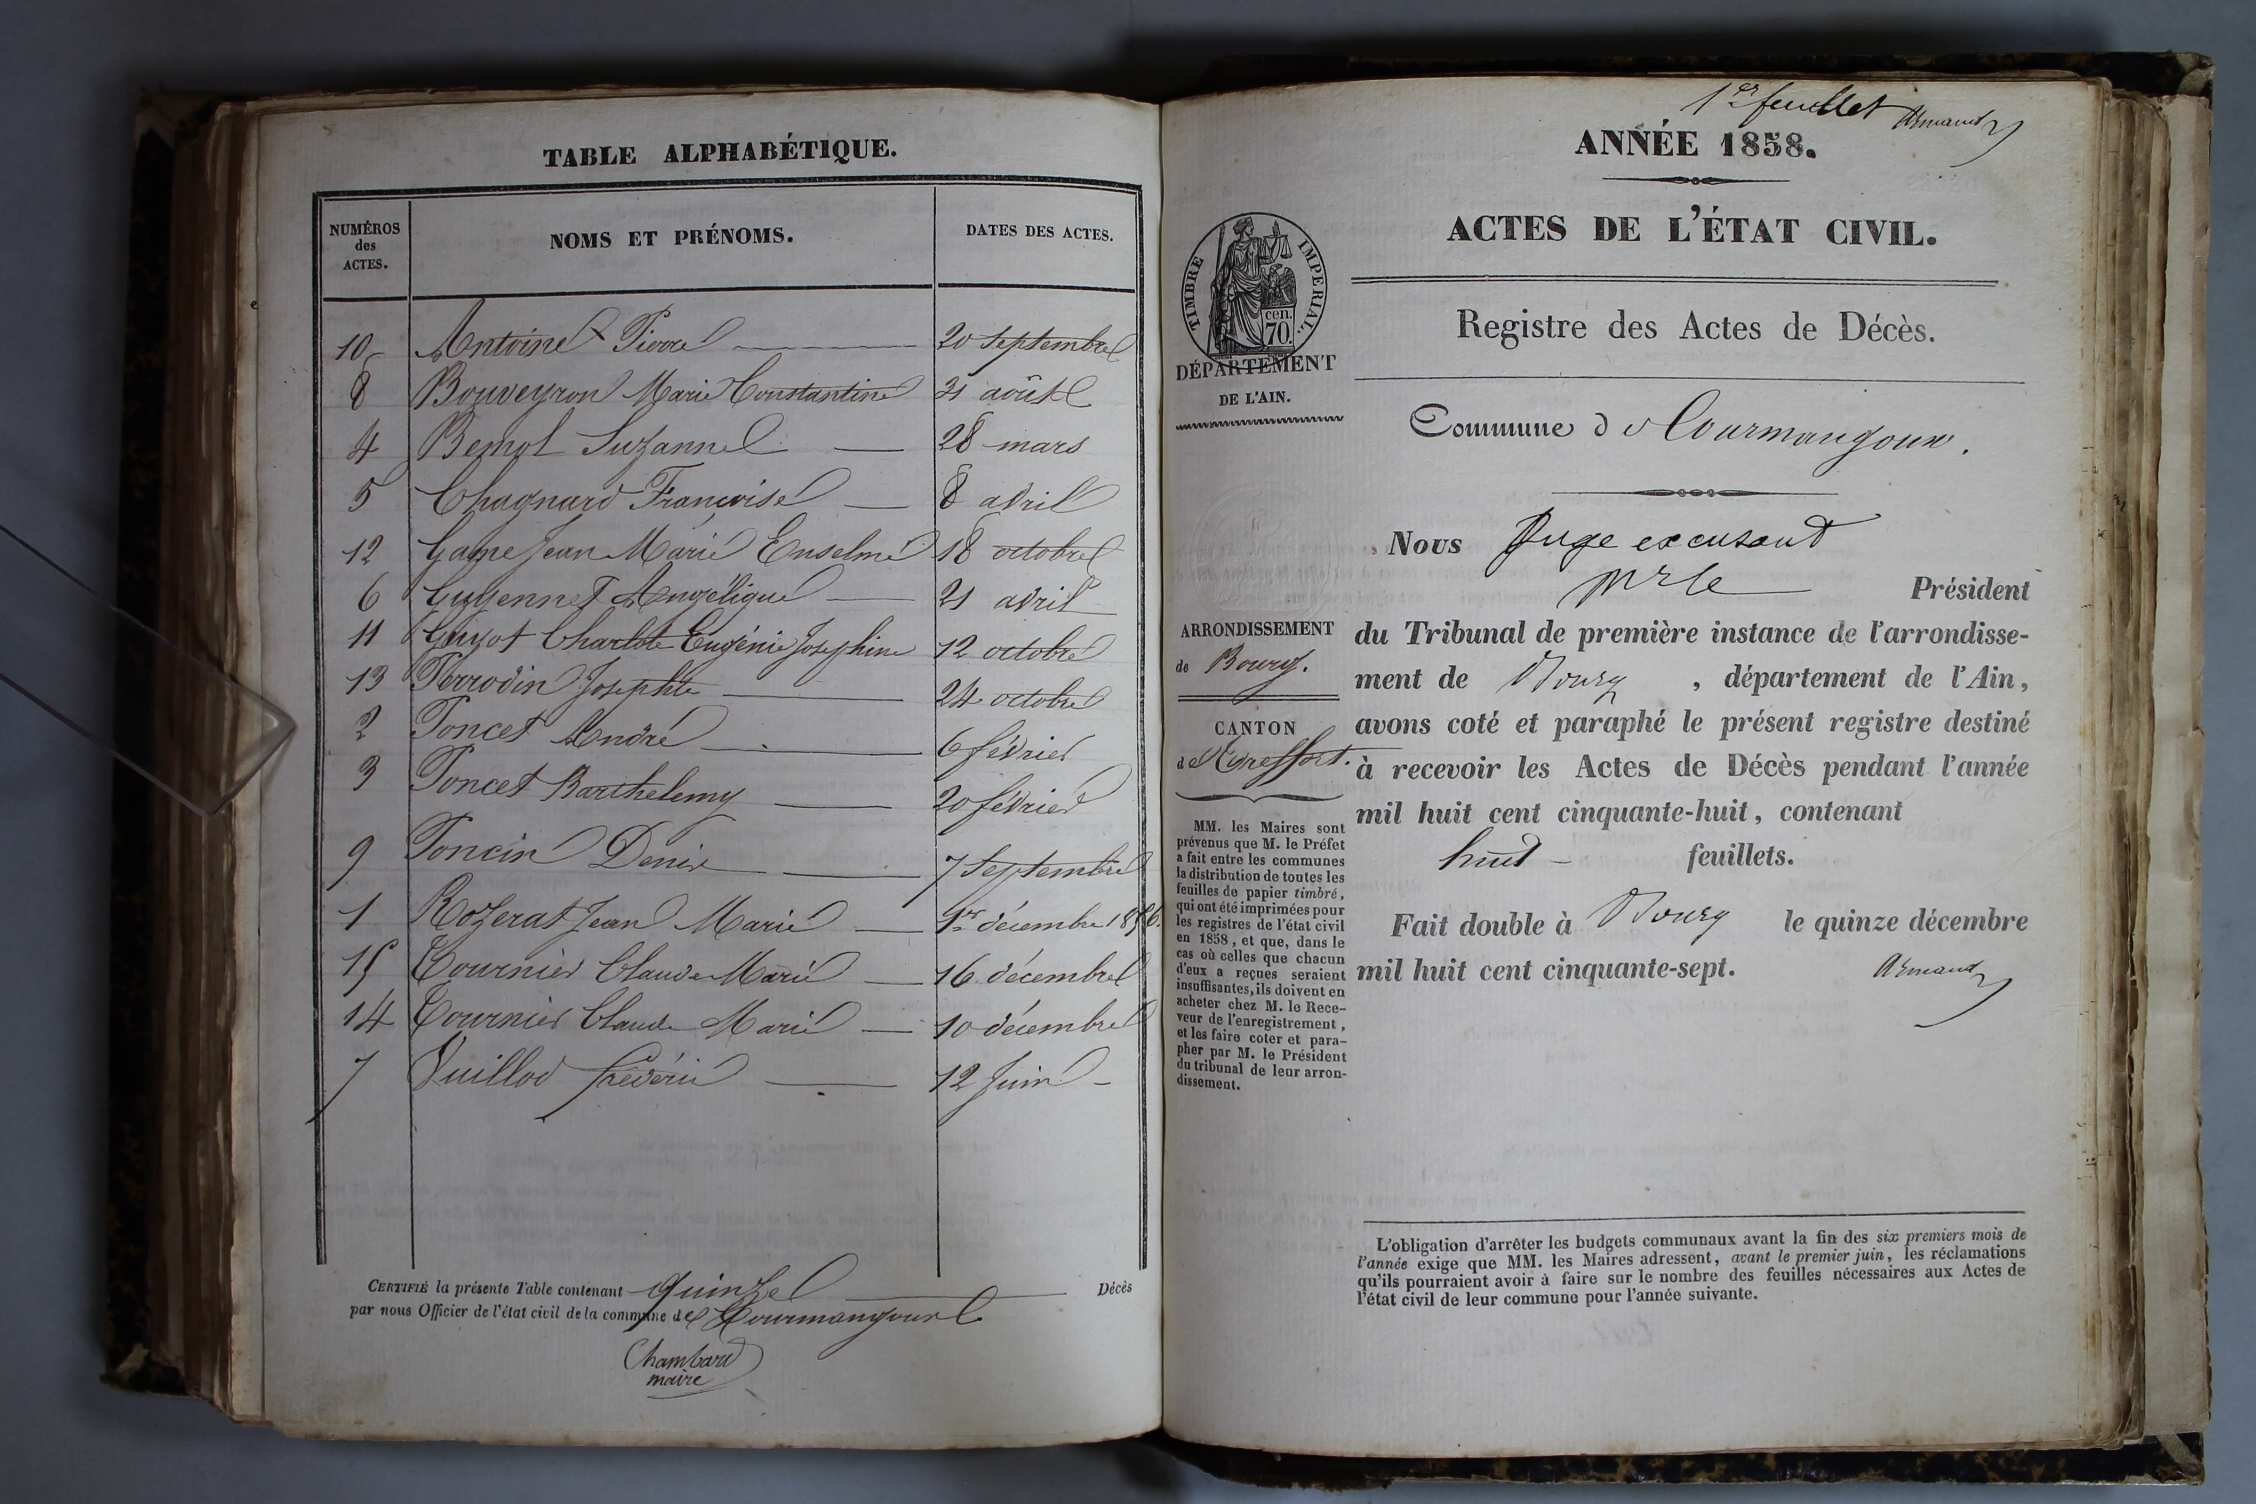 TABLE ALPHABÉTIQUE.
NUMÉROS des ACTES. NOMS ET PRÉNOMS. DATES DES ACTES.
10 Antoine Pierre 20 septembre
8 Bouveyron Marie Constantine 31 août
4 Bernol Suzanne 28 mars
5 Chagnard Françoise 8 avril
12 Game Jean Marie Enselme 18 octobre
6 Guyennet Angélique 21 avril
11 Guyot Charlote Eugénie Josephine 12 octobre
13 Perrodin Josephte 24 octobre
2 Poncet André 6 février
3 Poncet Barthelemy 20 février
9 Poncin Denis 7 septembre
1 Rozerat Jean Marie 1er décembre 1856.
15 Tournier Claude Marie 16 décembre
14 Tournier Claude Marie 10 décembre
7 Vuillod fréderic 12 Juin
CERTIFIÉ la présente Table contenant quinze Décès
par nous Officier de l'état civil de la commune de Courmangoux
Chambard
maire
1er feuillet Armand
ANNÉE 1858.
ACTES DE L'ÉTAT CIVIL.
TIMBRE IMPERIAL.
cen.
70.
Registre des Actes de Décès.
DÉPARTEMENT
DE L'AIN.
Commune de Courmangoux.
Nous Juge excusant
Mr le Président
ARRONDISSEMENT
de Bourg.
CANTON
de Treffort.
MM. les Maires sont
prévenus que M. le Préfet
a fait entre les communes
la distribution de toutes les
feuilles de papier timbré,
qui ont été imprimées pour
les registres de l'état civil
en 1858, et que, dans le
cas où celles que chacun
d'eux a reçues seraient
insuffisantes, ils doivent en
acheter chez M. le Rece-
veur de l'enregistrement,
et les faire coter et para-
pher par M. le Président
du tribunal de leur arron-
dissement.
du Tribunal de première instance de l'arrondisse-
ment de Bourg, département de l'Ain,
avons coté et paraphé le présent registre destiné
à recevoir les Actes de Décès pendant l'année
mil huit cent cinquante-huit, contenant
huit feuillets.
Fait double à Bourg le quinze décembre
mil huit cent cinquante-sept. Armand
L'obligation d'arrêter les budgets communaux avant la fin des six premiers mois de
l'année exige que MM. les Maires adressent, avant le premier juin, les réclamations
qu'ils pourraient avoir à faire sur le nombre des feuilles nécessaires aux Actes de
l'état civil de leur commune pour l'année suivante.